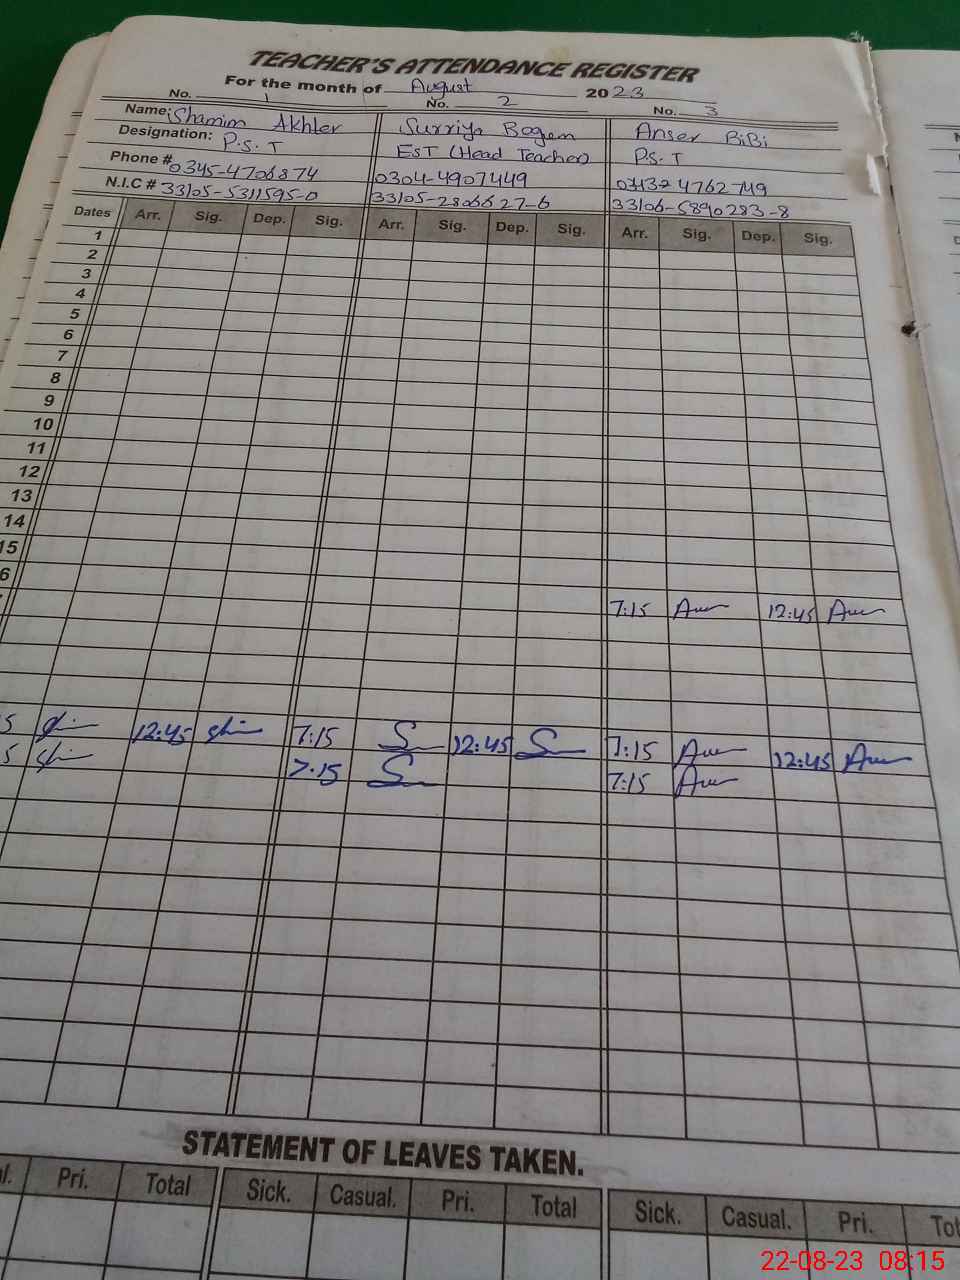 TEACHER'S ATTENDANCE REGISTER
For the month of August 2023
No. 1 No. 2 No. 3
Name: Shamim Akhter Surriya Begem Anser BiBi
Designation: P.S.T EST (Head Teacher) P.S.T
Phone # 0345-4706874 0304-4907449
N.I.C # 33105-5311595-0 33105-2806627-6 33106-5890283-8
Dates Arr. Sig. Dep. Sig. Arr. Sig. Dep. Sig. Arr. Sig. Dep. Sig.
1
2
3
4
5
6
7
8
9
10
11
12
13
14
15
6
7:15 12:45
5 12:45 7:15 12:45 7:15 12:45
5 7:15 7:15
STATEMENT OF LEAVES TAKEN.
l. Pri. Total Sick. Casual. Pri. Total Sick. Casual. Pri. Tot
22-08-23 08:15